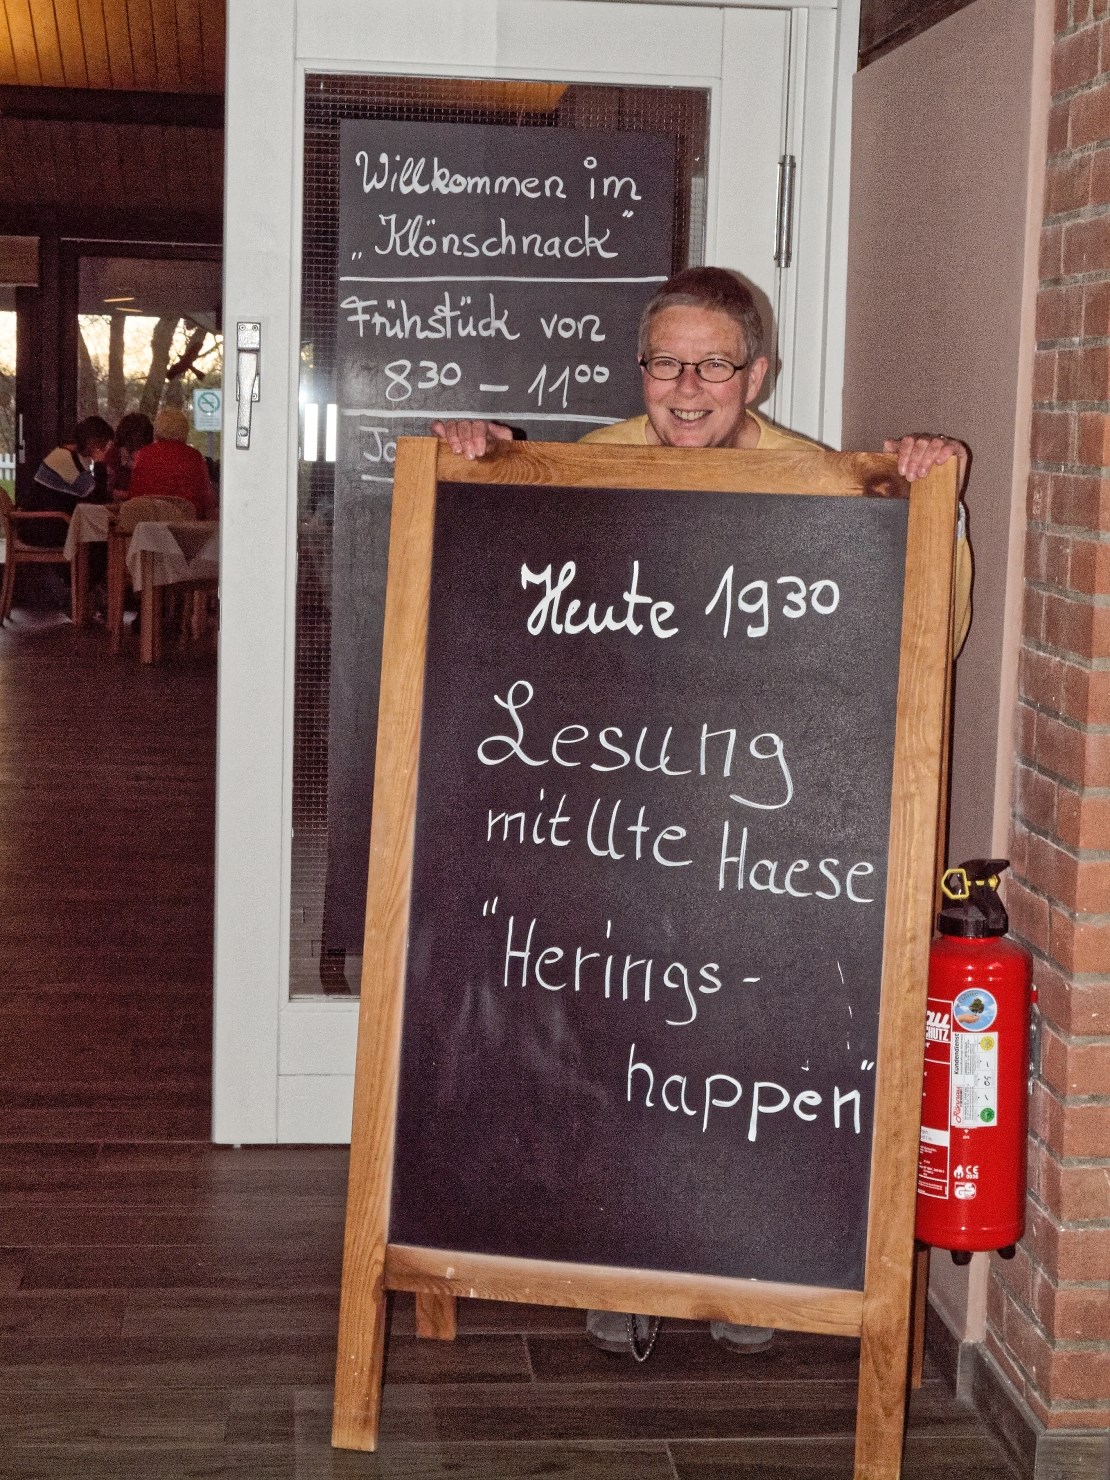 Willkommen im
„Klönschnack"
Frühstück von
8³⁰ – 11⁰⁰
Heute 19³⁰
Lesung
mit Ute Haese
"Herings-
happen"
Kundendienst
CE